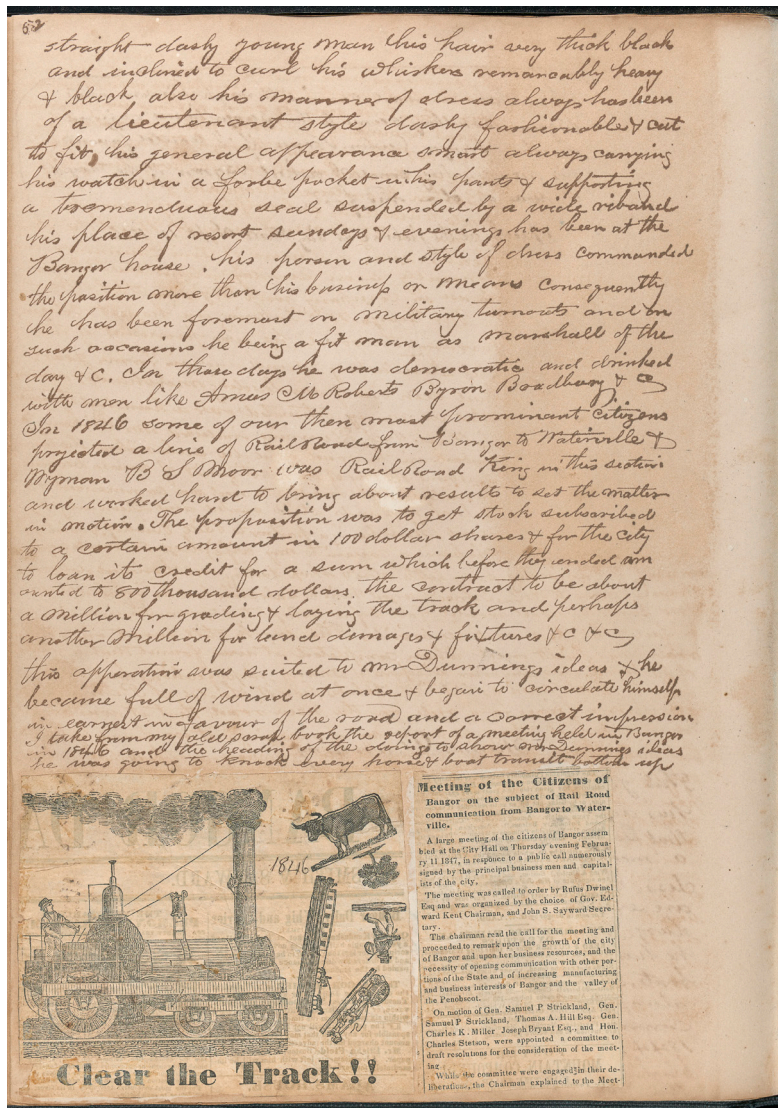 52
straight dashy young man his hair very thick black
and inclined to curl his whiskers remarcably heavy
& black also his manner of dress always has been
of a lieutenant style dashy fashionable & cut
to fit, his general appearance smart always carrying
his watch in a forbe pocket in his pants & supporting
a tremenduous seal suspended by a wide riband
his place of resort sundays & evenings has been at the
Bangor house. his person and style of dress commanded
the position more than his business or means consequently
he has been foremost on military turnouts and on
such occasions he being a fit man as marshall of the
day &c. In those days he was democratic and drinked
with men like Amos M Roberts Byron Bradbury & c
In 1846 some of our then most prominant citizens
projected a line of Rail Road from Bangor to Waterville &
Wyman B S Moor was Rail Road King in this section
and worked hard to bring about results to set the matter
in motion. The proposition was to get stock subscribed
to a certain amount in 100 dollar shares & for the city
to loan its credit for a sum which before they ended am
ounted to 800 thousand dollars. the contract to be about
a million for grading & laying the track and perhaps
another Million for land damages & fixtures &c &c
this opperation was suited to mr Dunnings ideas & he
became full of wind at once & began to circulate himself
in earnest in favour of the road and a correct impression
I take from my old scrap book the report of a meeting held in Bangor
in 1846 and the heading of the doings to show mr Dunnings ideas
he was going to knock every horse & boat transit bottom up
1846
Clear the Track!!
Meeting of the Citizens of
Bangor on the subject of Rail Road
communication from Bangor to Water-
ville.
A large meeting of the citizens of Bangor assem
bled at the City Hall on Thursday evening Februa-
ry 11 1847, in responce to a public call numerously
signed by the principal business men and capital-
ists of the city.
The meeting was called to order by Rufus Dwinel
Esq and was organized by the choice of Gov. Ed-
ward Kent Chairman, and John S. Sayward Secre-
tary.
The chairman read the call for the meeting and
proceeded to remark upon the growth of the city
of Bangor and upon her business resources, and the
necessity of opening communication with other por-
tions of the State and of increasing manufacturing
and business interests of Bangor and the valley of
the Penobscot.
On motion of Gen. Samuel P Strickland, Gen.
Samuel P Strickland, Thomas A. Hill Esq. Gen.
Charles K. Miller Joseph Bryant Esq., and Hon.
Charles Stetson, were appointed a committee to
draft resolutions for the consideration of the meet-
ing
While the committee were engaged in their de-
liberation, the Chairman explained to the Meet-